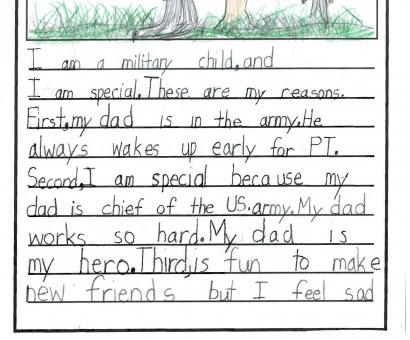 I am a military child, and
I am special. These are my reasons.
First, my dad is in the army. He
always wakes up early for PT.
Second, I am special because my
dad is chief of the US. army. My dad
works so hard. My dad is
my hero. Third, is fun to make
new friends but I feel sad